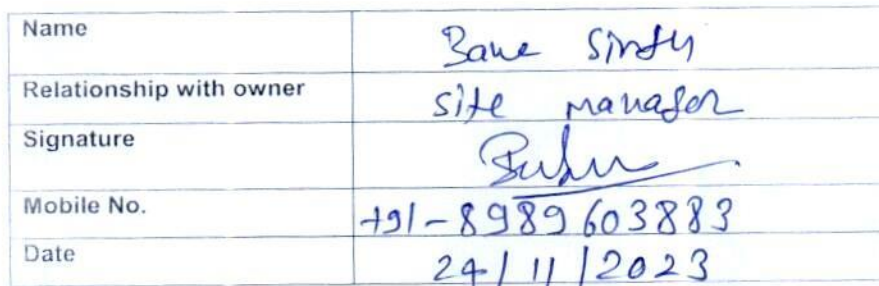 Name Bane Singh
Relationship with owner site manager
Signature
Mobile No. +91-8989603883
Date 24/11/2023